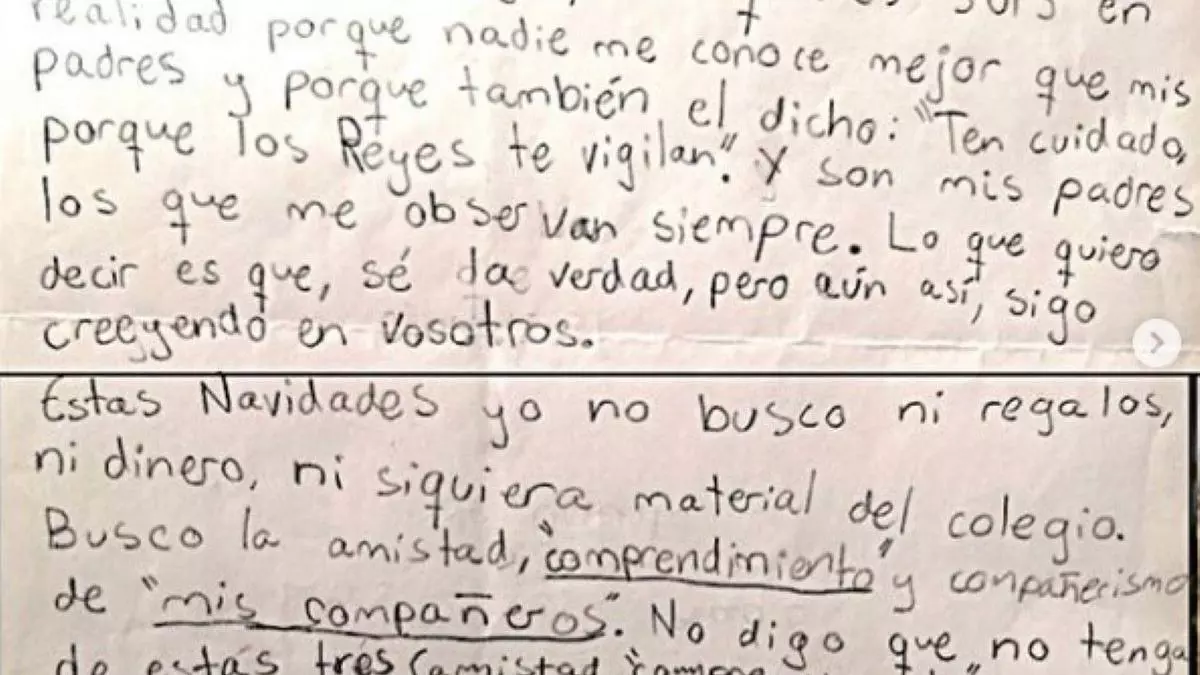 sois en
realidad porque nadie me conoce mejor que mis
padres y porque también el dicho: "Ten cuidado,
porque los Reyes te vigilan". Y son mis padres
los que me observan siempre. Lo que quiero
decir es que, sé la verdad, pero aún así, sigo
creeyendo en vosotros.
Estas Navidades yo no busco ni regalos,
ni dinero, ni siquiera material del colegio.
Busco la amistad, "comprendimiento" y compañerismo
de "mis compañeros". No digo que no tenga
de estas tres (amistad,